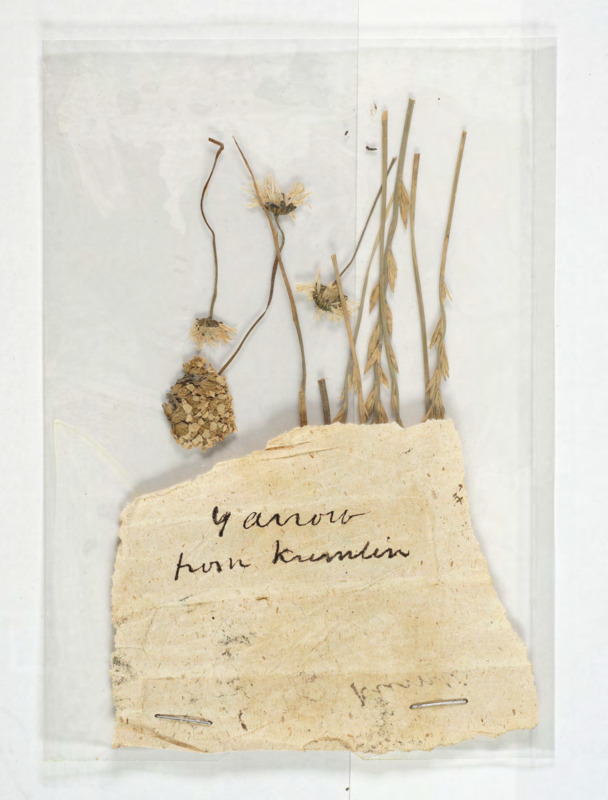 Yarrow
from Kremlin